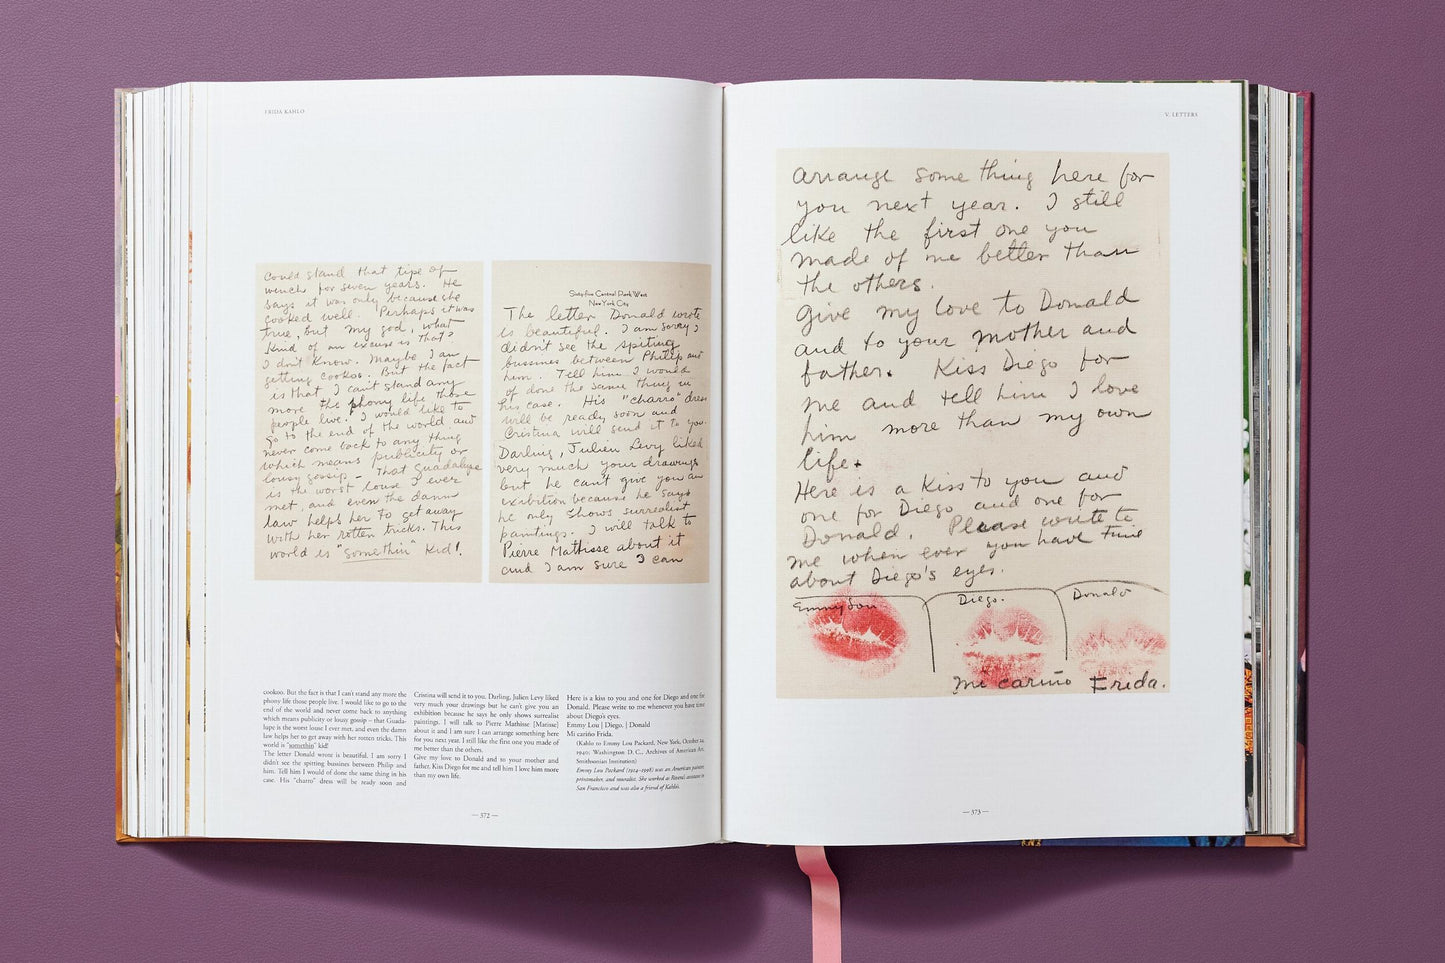 FRIDA KAHLO
could stand that tipe of
wench for seven years. He
says it was only because she
cooked well. Perhaps it was
true, but my god, what
kind of an excuse is that?
I don't know. Maybe I am
getting cookoo. But the fact
is that I can't stand any
more the phony life those
people live. I would like to
go to the end of the world and
never come back to any thing
which means publicity or
lousy gossip – That Guadalupe
is the worst louse I ever
met, and even the damn
law helps her to get away
with her rotten tricks. This
world is "somethin" kid!
Sixty-five Central Park West
New York City
The letter Donald wrote
is beautiful. I am sorry I
didn't see the spiting
bussines between Philip and
him. Tell him I would
of done the same thing in
his case. His "charro" dress
will be ready soon and
Cristina will send it to you.
Darling, Julien Levy liked
very much your drawings
but he can't give you an
exibition because he says
he only shows surrealist
paintings. I will talk to
Pierre Mathisse about it
and I am sure I can
cookoo. But the fact is that I can't stand any more the
phony life those people live. I would like to go to the
end of the world and never come back to anything
which means publicity or lousy gossip – that Guada-
lupe is the worst louse I ever met, and even the damn
law helps her to get away with her rotten tricks. This
world is "somethin" kid!
The letter Donald wrote is beautiful. I am sorry I
didn't see the spitting bussines between Philip and
him. Tell him I would of done the same thing in his
case. His "charro" dress will be ready soon and
Cristina will send it to you. Darling, Julien Levy liked
very much your drawings but he can't give you an
exhibition because he says he only shows surrealist
paintings. I will talk to Pierre Mathisse [Matisse]
about it and I am sure I can arrange something here
for you next year. I still like the first one you made of
me better than the others.
Give my love to Donald and to your mother and
father. Kiss Diego for me and tell him I love him more
than my own life.
Here is a kiss to you and one for Diego and one for
Donald. Please write to me whenever you have time
about Diego's eyes.
Emmy Lou | Diego. | Donald
Mi cariño Frida.
(Kahlo to Emmy Lou Packard, New York, October 24,
1940; Washington D. C., Archives of American Art,
Smithsonian Institution)
Emmy Lou Packard (1914–1998) was an American painter,
printmaker, and muralist. She worked as Rivera's assistant in
San Francisco and was also a friend of Kahlo's.
— 372 —
V. LETTERS
arrange some thing here for
you next year. I still
like the first one you
made of me better than
the others.
Give my love to Donald
and to your mother and
father. Kiss Diego for
me and tell him I love
him more than my own
life.
Here is a kiss to you and
one for Diego and one for
Donald. Please write to
me when ever you have time
about Diego's eyes.
Emmy Lou Diego. Donald
mi cariño Frida.
— 373 —